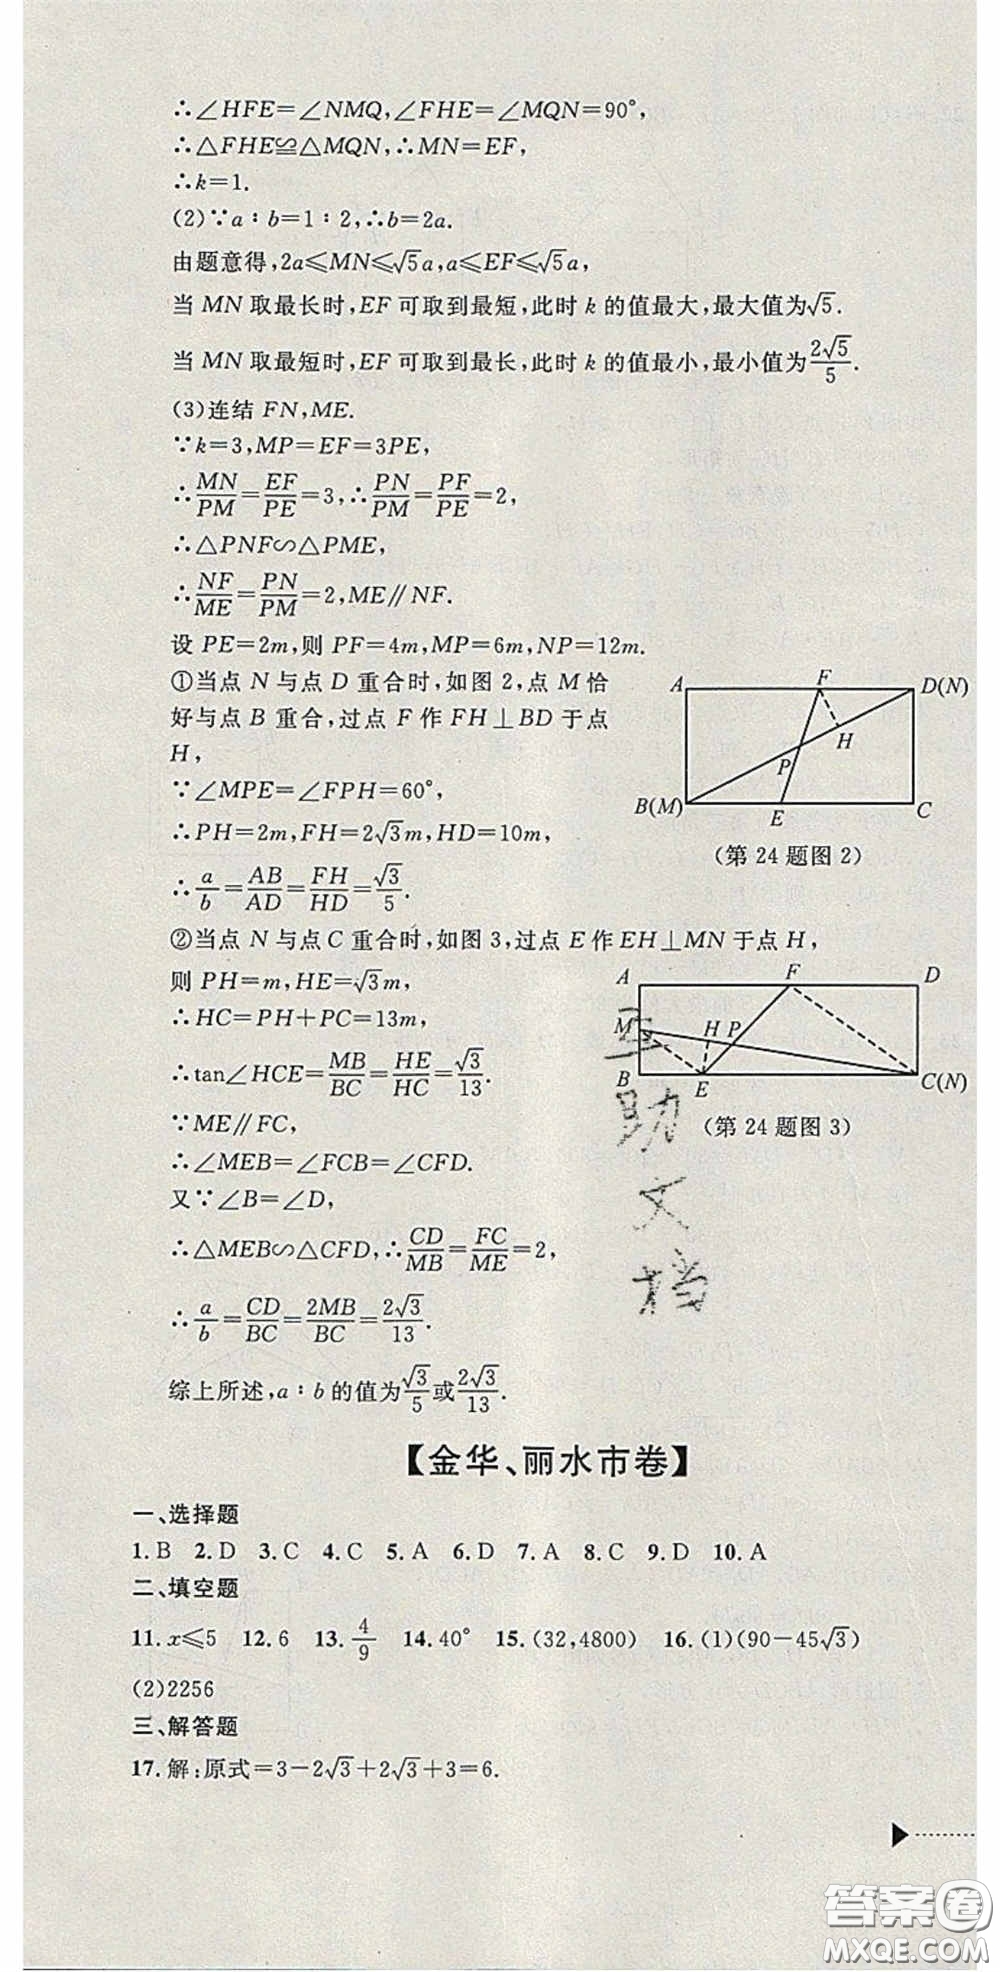 ∴∠HFE=∠NMQ,∠FHE=∠MQN=90°,
∴△FHE≌△MQN,∴MN=EF,
∴k=1.
(2)∵a∶b=1∶2,∴b=2a.
由题意得,2a≤MN≤√5a,a≤EF≤√5a,
当 MN 取最长时,EF 可取到最短,此时 k 的值最大,最大值为√5.
当 MN 取最短时,EF 可取到最长,此时 k 的值最小,最小值为2√5/5.
(3)连结 FN,ME.
∵k=3,MP=EF=3PE,
∴MN/PM=EF/PE=3,∴PN/PM=PF/PE=2,
∴△PNF∽△PME,
∴NF/ME=PN/PM=2,ME∥NF.
设 PE=2m,则 PF=4m,MP=6m,NP=12m.
①当点 N 与点 D 重合时,如图 2,点 M 恰
好与点 B 重合,过点 F 作 FH⊥BD 于点
H,
∵∠MPE=∠FPH=60°,
∴PH=2m,FH=2√3m,HD=10m,
∴a/b=AB/AD=FH/HD=√3/5.
A F D(N)
H
P
B(M) E C
(第 24 题图 2)
②当点 N 与点 C 重合时,如图 3,过点 E 作 EH⊥MN 于点 H,
则 PH=m,HE=√3m,
∴HC=PH+PC=13m,
∴tan∠HCE=MB/BC=HE/HC=√3/13.
∵ME∥FC,
∴∠MEB=∠FCB=∠CFD.
又∵∠B=∠D,
∴△MEB∽△CFD,∴CD/MB=FC/ME=2,
∴a/b=CD/BC=2MB/BC=2√3/13.
A F D
M H P
B E C(N)
(第 24 题图 3)
互
助
文
档
综上所述,a∶b 的值为√3/5或2√3/13.
【金华、丽水市卷】
一、选择题
1.B 2.D 3.C 4.C 5.A 6.D 7.A 8.C 9.D 10.A
二、填空题
11.x≤5 12.6 13.4/9 14.40° 15.(32,4800) 16.(1)(90-45√3)
(2)2256
三、解答题
17.解:原式=3-2√3+2√3+3=6.
答案圈
MXQE.COM